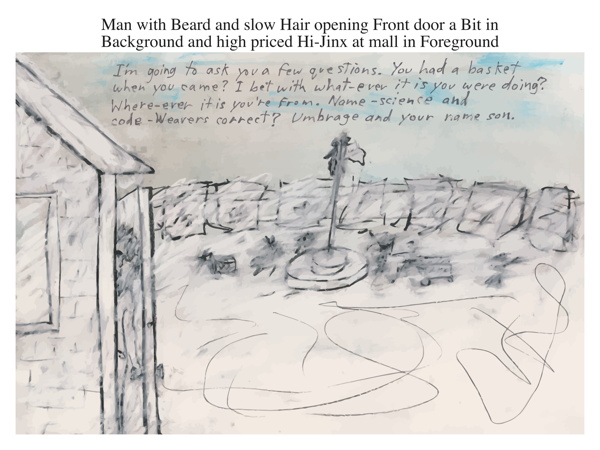 Man with Beard and slow Hair opening Front door a Bit in
Background and high priced Hi-Jinx at mall in Foreground
I'm going to ask you a few questions. You had a basket
when you came? I bet with what-ever it is you were doing?
Where-ever it is you're from. Name-science and
code-Weavers correct? Umbrage and your name son.